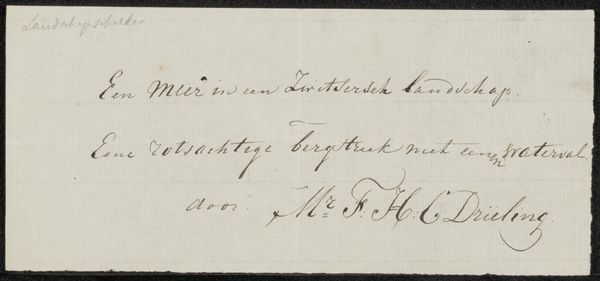 Landschapschilder
Een meer in een Zwitsersch landschap.
Eene rotsachtige bergstreek met eenen waterval
door. Mr. F. H. C Drieling.